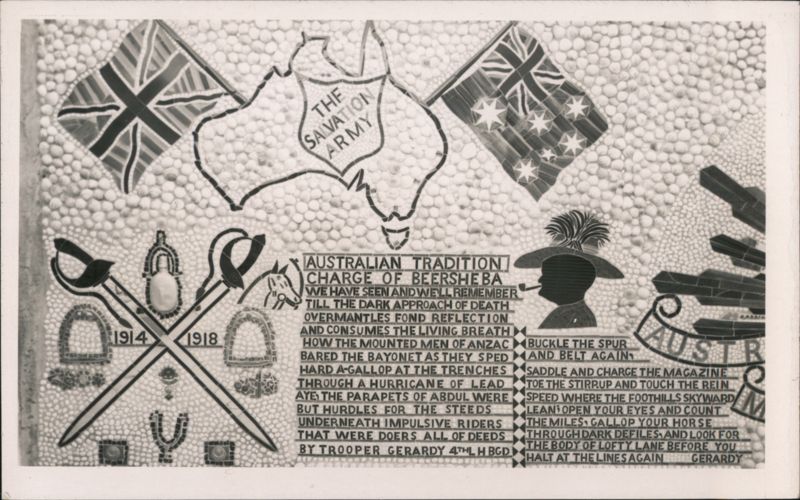 THE
SALVATION
ARMY
1914 1918
AUSTRALIAN TRADITION
CHARGE OF BEERSHEBA
WE HAVE SEEN AND WE'LL REMEMBER
TILL THE DARK APPROACH OF DEATH
OVERMANTLES FOND REFLECTION
AND CONSUMES THE LIVING BREATH
HOW THE MOUNTED MEN OF ANZAC
BARED THE BAYONET AS THEY SPED
HARD A-GALLOP AT THE TRENCHES
THROUGH A HURRICANE OF LEAD
AYE; THE PARAPETS OF ABDUL WERE
BUT HURDLES FOR THE STEEDS
UNDERNEATH IMPULSIVE RIDERS
THAT WERE DOERS ALL OF DEEDS
BY TROOPER GERARDY 4TH L H BGD
BUCKLE THE SPUR
AND BELT AGAIN,
SADDLE AND CHARGE THE MAGAZINE
TOE THE STIRRUP AND TOUCH THE REIN
SPEED WHERE THE FOOTHILLS SKYWARD
LEAN; OPEN YOUR EYES AND COUNT
THE MILES; GALLOP YOUR HORSE
THROUGH DARK DEFILES; AND LOOK FOR
THE BODY OF LOFTY LANE BEFORE YOU
HALT AT THE LINES AGAIN GERARDY
AUSTR